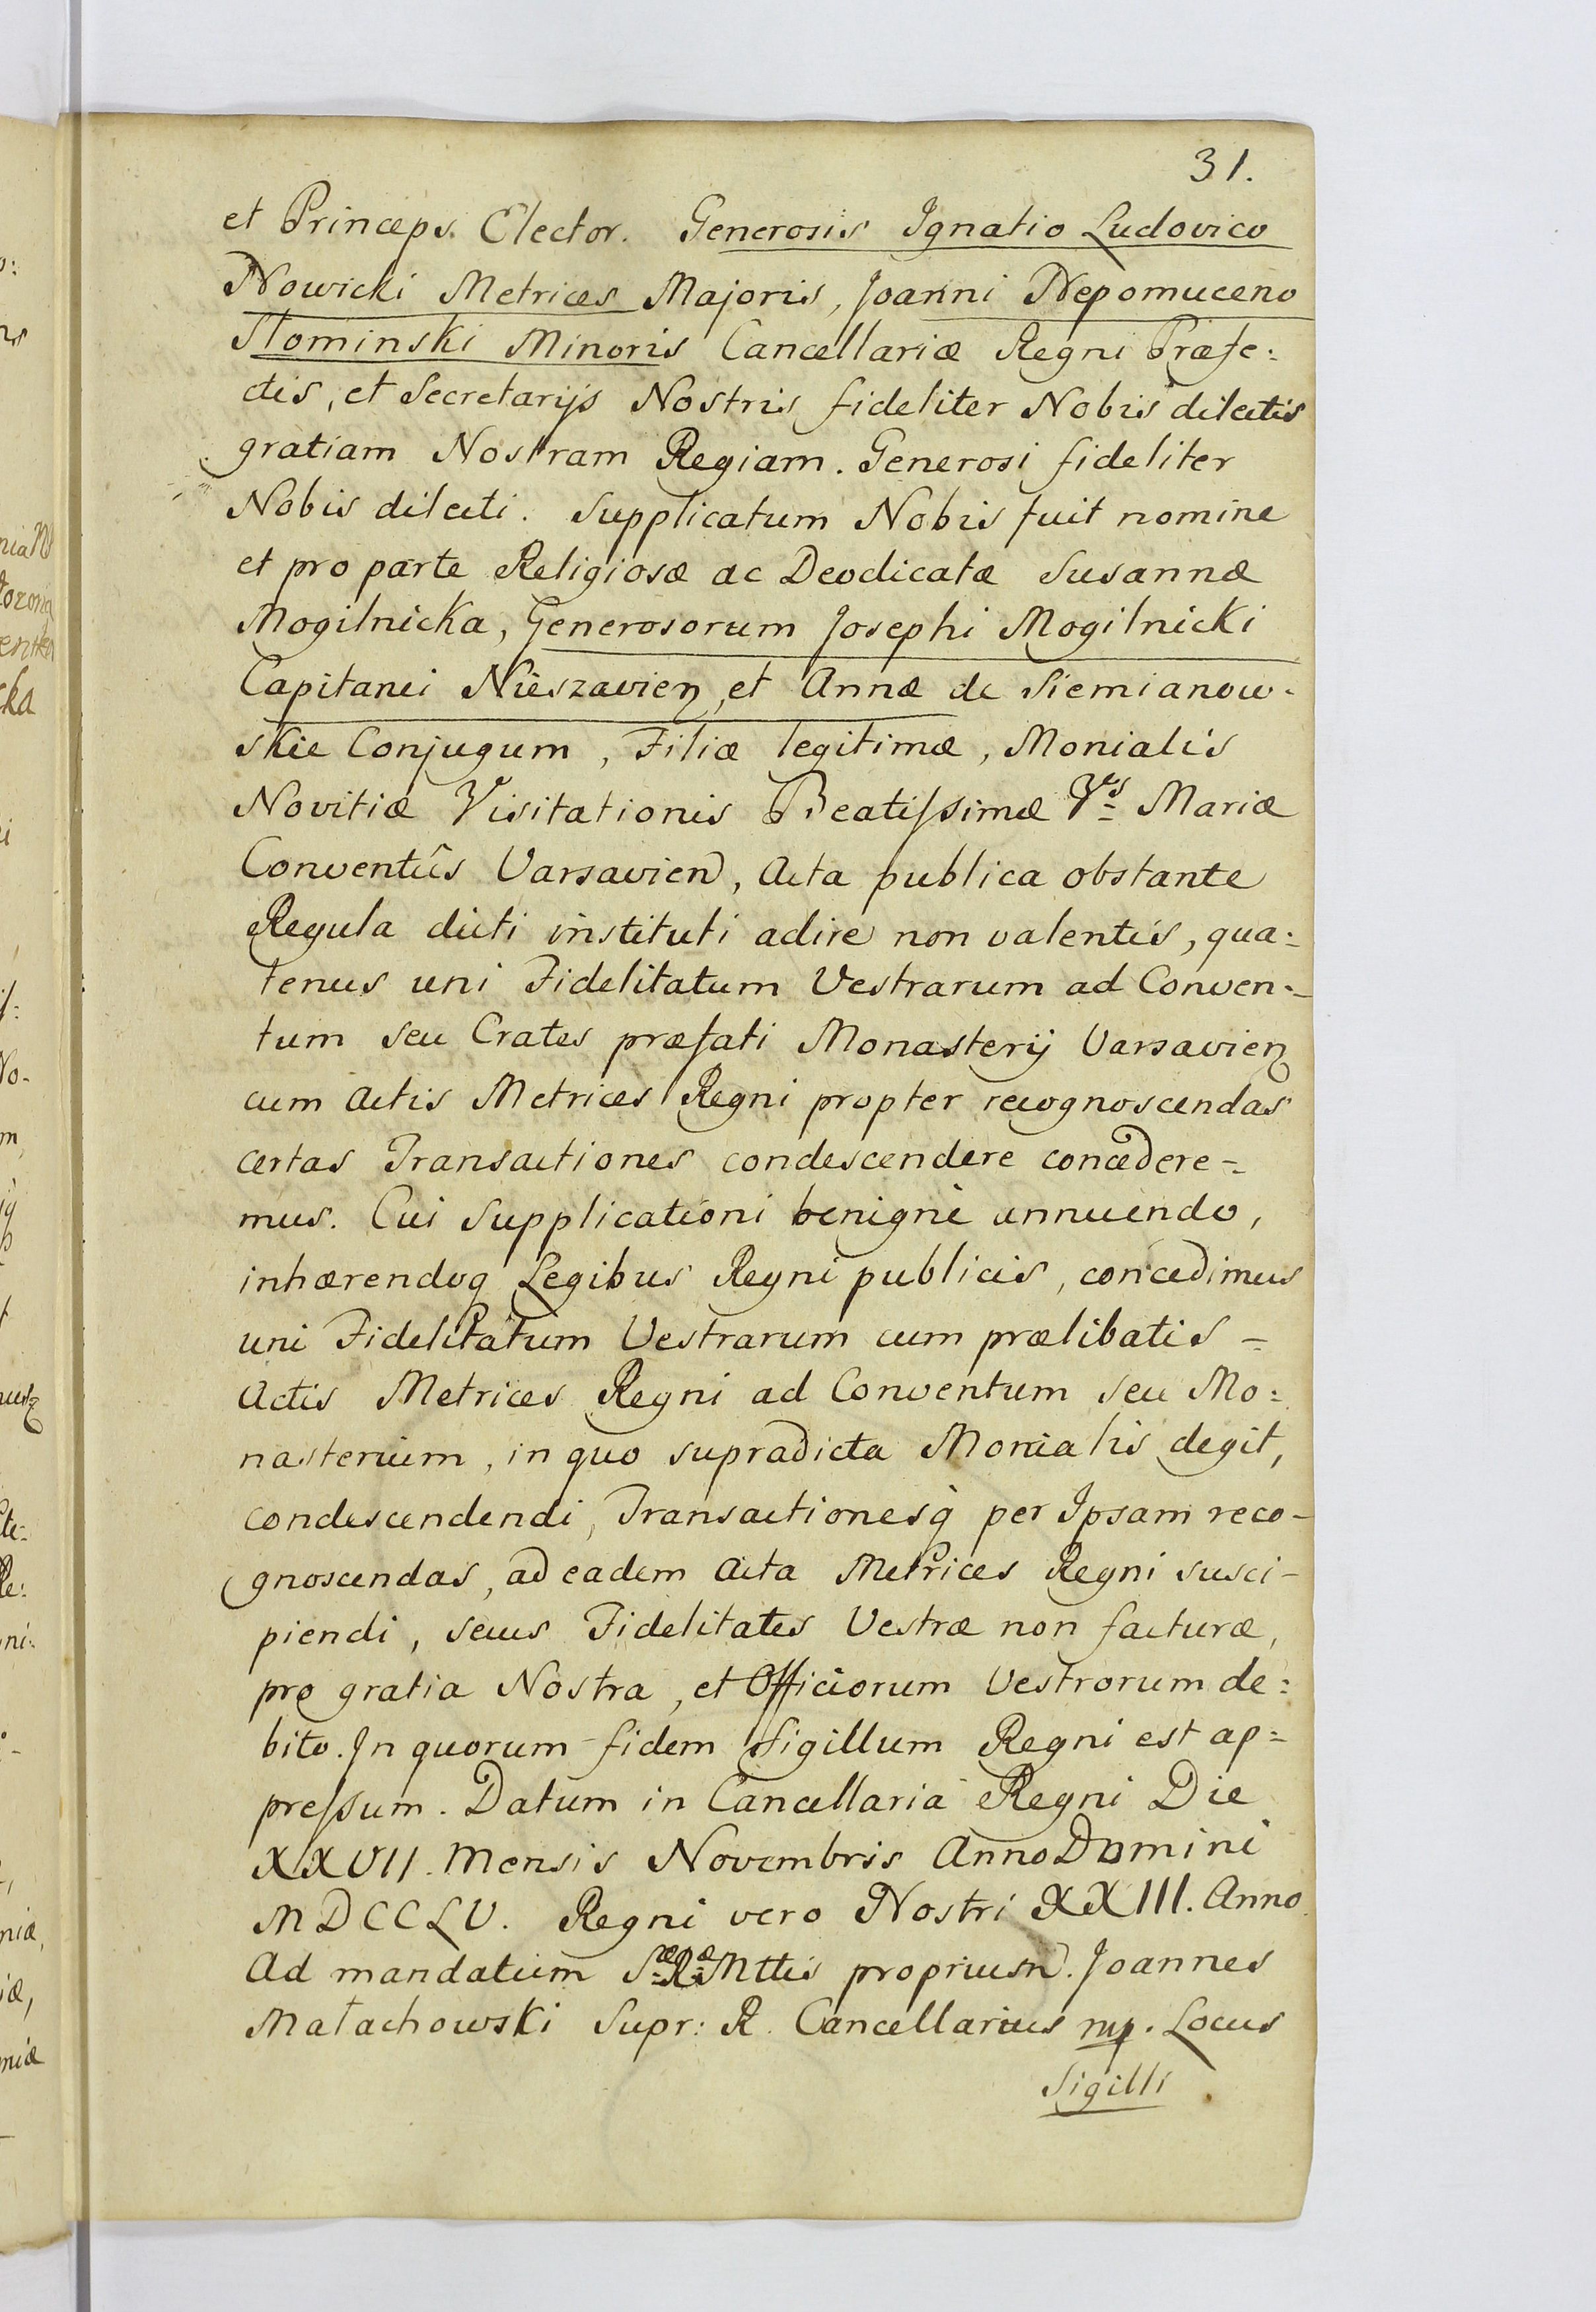 31.
et Princeps Elector. Generosis Ignatio Ludovico
Nowicki Metrices Majoris, Joanni Nepomuceno
Słominski Minoris Cancellariæ Regni Præfe:
ctis, et Secretarijs Nostris fideliter Nobis dilectis
gratiam Nostram Regiam. Generosi fideliter
Nobis dilecti. Supplicatum Nobis fuit nomine
et pro parte Religiosæ ac Deodicatæ Susannæ
Mogilnicka, Generosorum Josephi Mogilnicki
Capitanei Nieszavien, et Annæ de Siemianow-
skie Conjugum, Filiæ legitimæ, Monialis
Novitiæ Visitationis Beatissimæ V^is Mariæ
Conventûs Varsavien, Acta publica obstante
Regula dicti instituti adire non valentis, qua:
tenus uni Fidelitatum Vestrarum ad Conven-
tum seu Crates præfati Monasterij Varsavien
cum Actis Metrices Regni propter recognoscendas
certas Transactiones condescendere concedere-
mus. Cui Supplicationi benignè annuendo,
inhærendoq Legibus Regni publicis, concedimus
uni Fidelitatum Vestrarum cum prælibatis -
Actis Metrices Regni ad Conventum seu Mo:
nasterium, in quo supradicta Monialis degit,
condescendendi, Transactionesq per Ipsam reco-
gnoscendas, ad eadem Acta Metrices Regni susci-
piendi, secus Fidelitates Vestræ non facturæ,
pro gratia Nostra, et Officiorum Vestrorum de:
bito. In quorum fidem Sigillum Regni est ap=
pressum. Datum in Cancellaria Regni Die
XXVII. Mensis Novembris Anno Domini
MDCCLV. Regni vero Nostri XXIII. Anno.
Ad mandatum S^æ R^æ Mttis proprium. Joannes
Małachowski Supr: R. Cancellarius mp. Locus
Sigilli